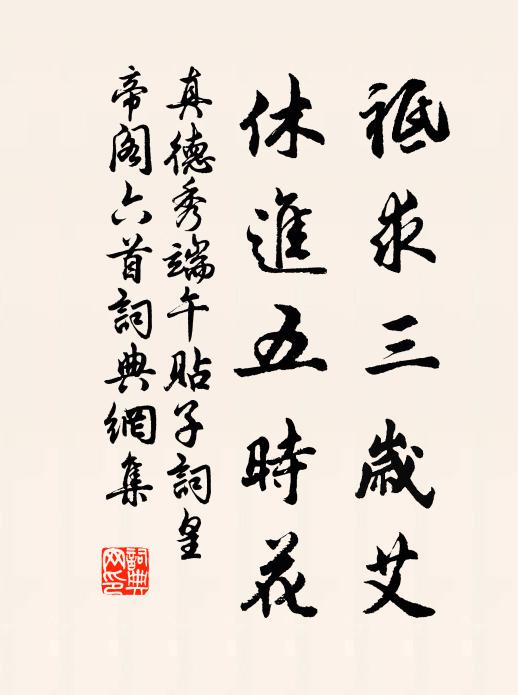 祗求三歲艾
休進五時花
真德秀端午貼子詞皇
帝閣六首詞典網集
詞典网印